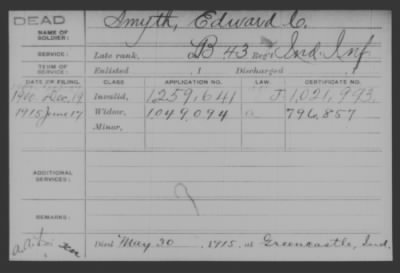 DEAD
NAME OF SOLDIER: Smyth, Edward C.
SERVICE: Late rank, B 43 Reg't Ind Inf
TERM OF SERVICE: Enlisted , 1 Discharged , 1
DATE OF FILING. CLASS APPLICATION NO. LAW. CERTIFICATE NO.
1900 Dec. 19 Invalid, 1259,641 J 1,021,993
1915 June 17 Widow, 1049,094 a 796,857
Minor,
ADDITIONAL SERVICES:
REMARKS:
Died May 30 1915, at Greencastle, Ind.